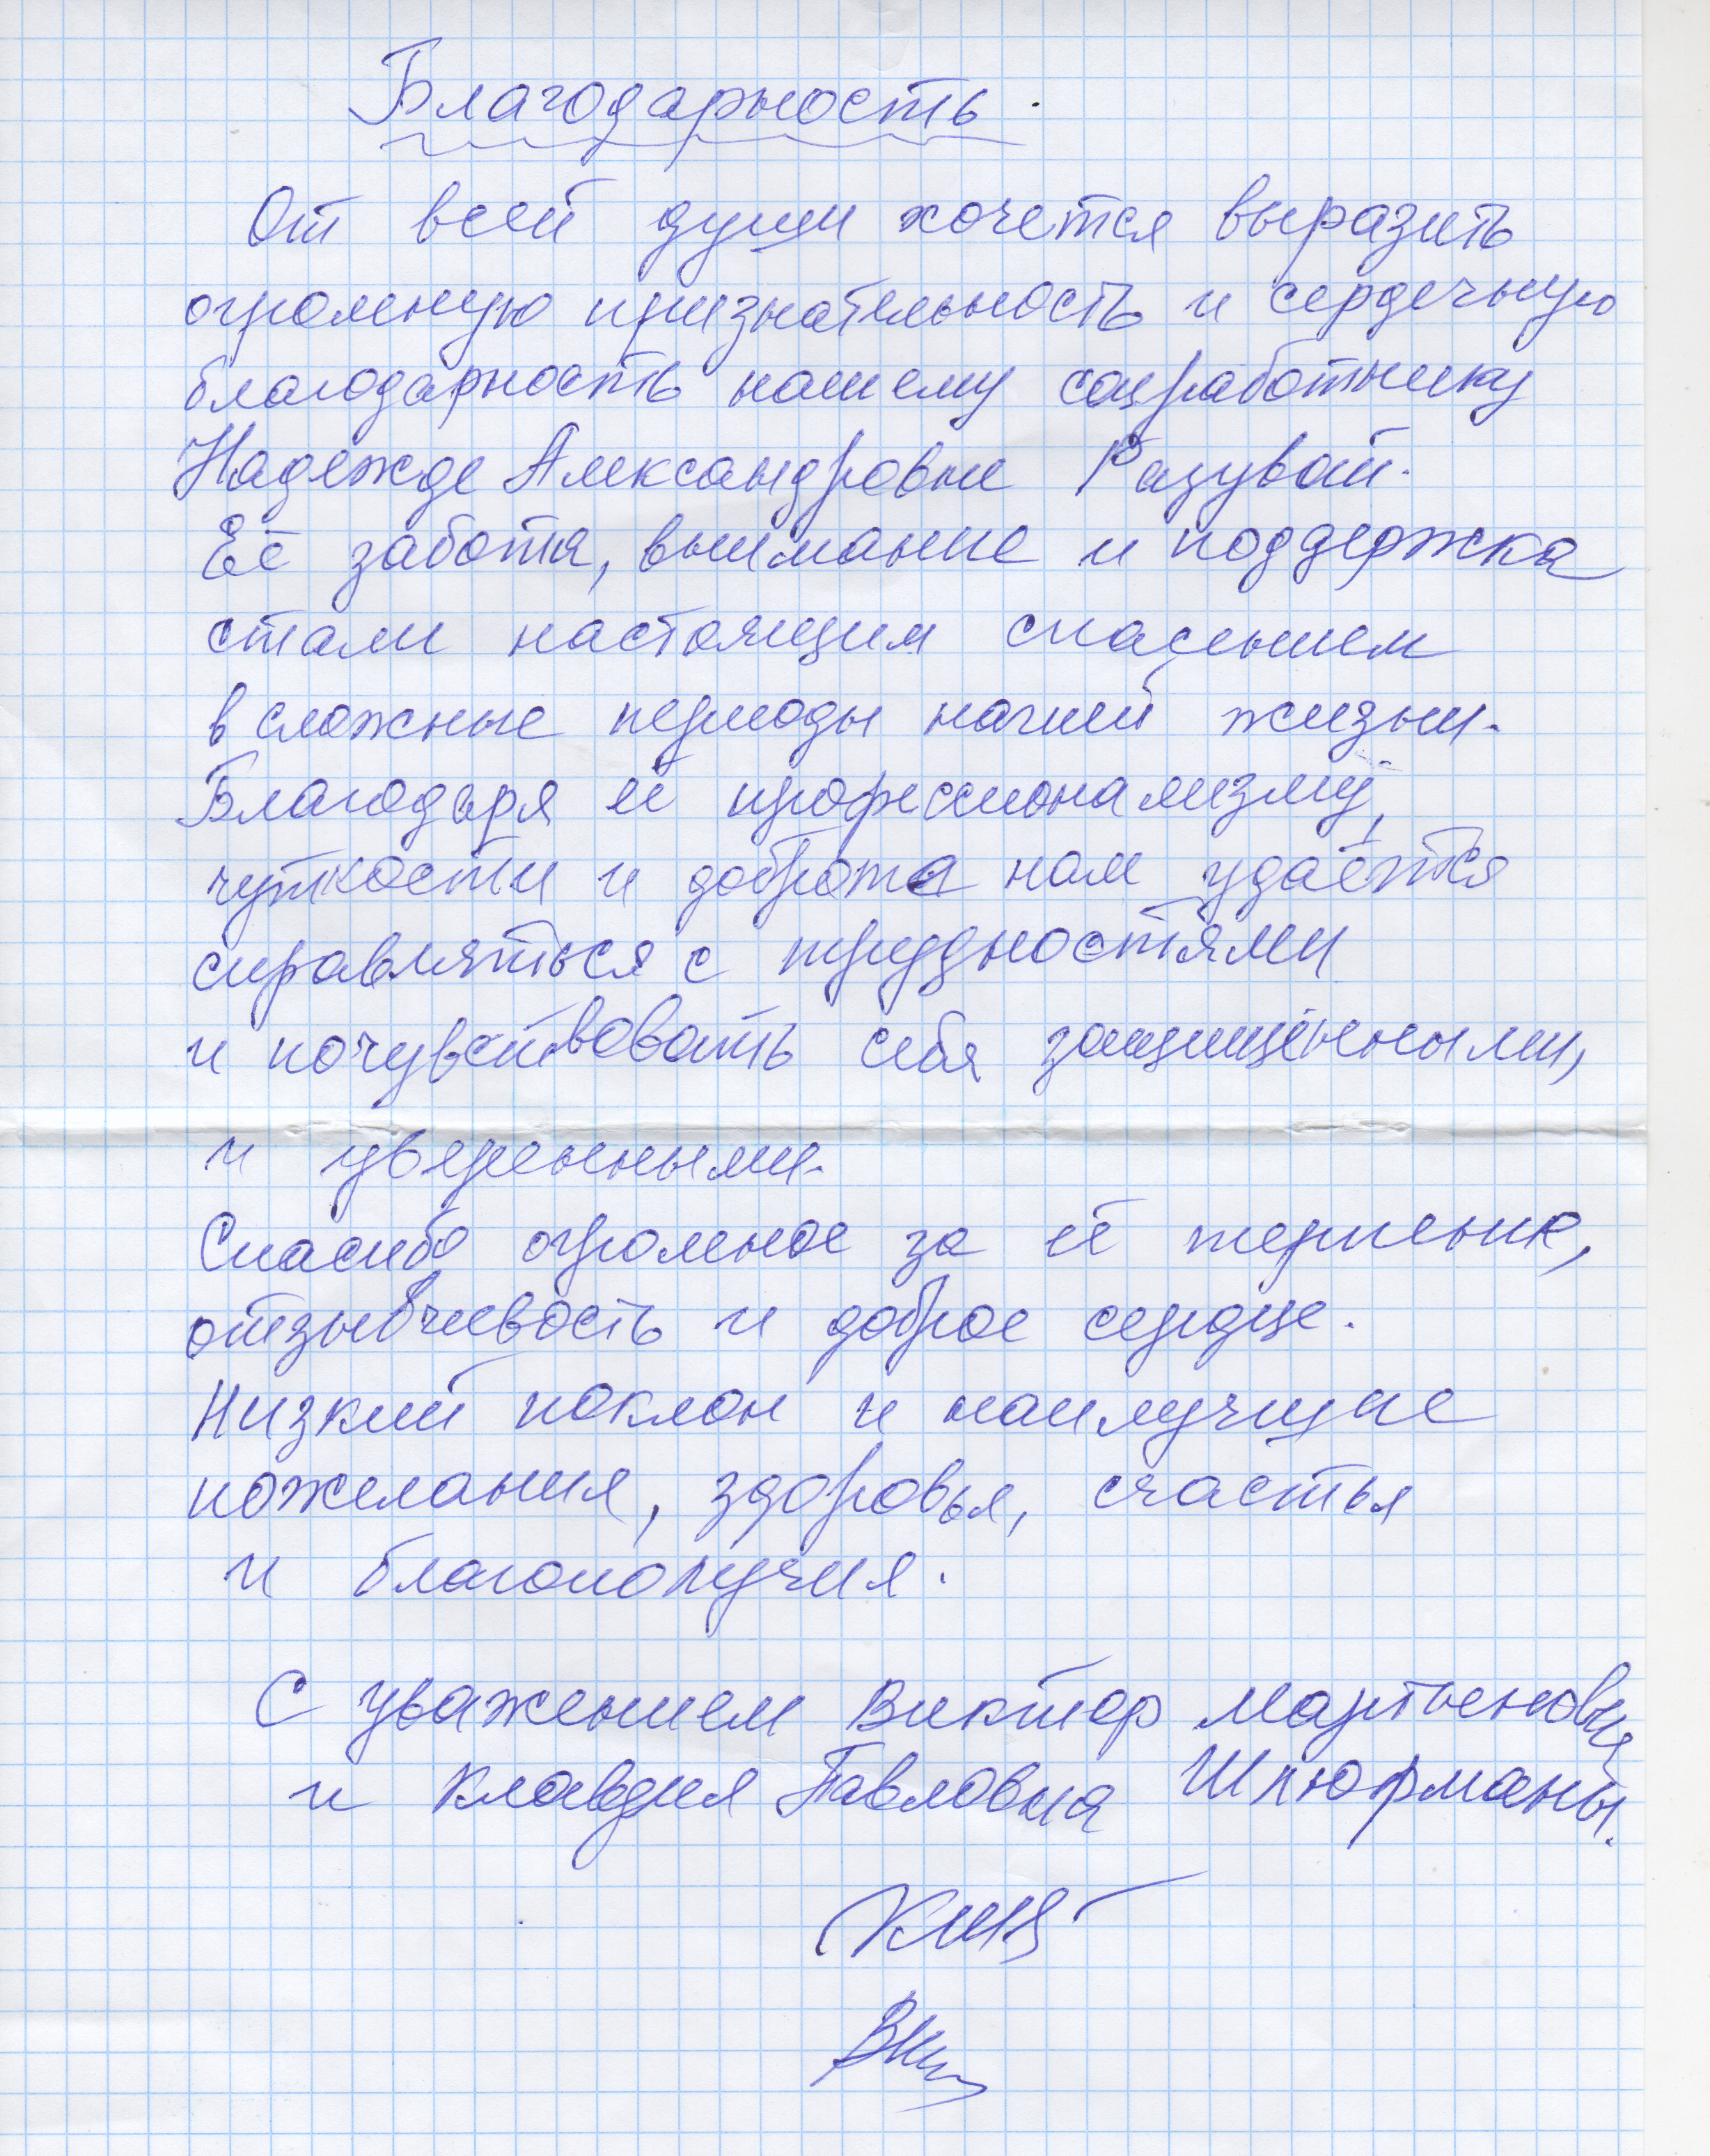 Благодарность.
От всей души хочется выразить
огромную признательность и сердечную
благодарность нашему соцработнику
Надежде Александровне Разувай.
Её забота, внимание и поддержка
стали настоящим спасением
в сложные периоды нашей жизни.
Благодаря её профессионализму,
чуткости и доброта нам удаётся
справляться с трудностями
и почувствовать себя защищёнными,
и уверенными.
Спасибо огромное за её терпение,
отзывчивость и доброе сердце.
Низкий поклон и наилучшие
пожелания, здоровья, счастья
и благополучия.
С уважением Виктор Мартынович
и Клавдия Павловна Шпюрманы.